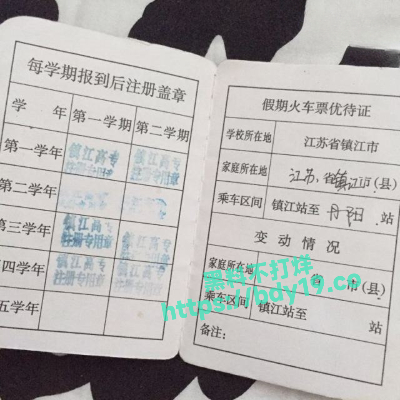 每学期报到后注册盖章
学 年 第一学期 第二学期
第一学年 镇江高专 注册专用章 镇江高专 注册专用章
第二学年
第三学年 镇江高专 注册专用章 镇江高专 注册专用章
四学年 镇江高专 注册专用章
五学年
假期火车票优待证
学校所在地 江苏省镇江市
家庭所在地 江苏省镇江市(县)
乘车区间 镇江站至 丹阳 站
变动情况
家庭所在地 省 市(县)
乘车区间 镇江站至 站
备注:
黑料不打烊
https://bdy19.co